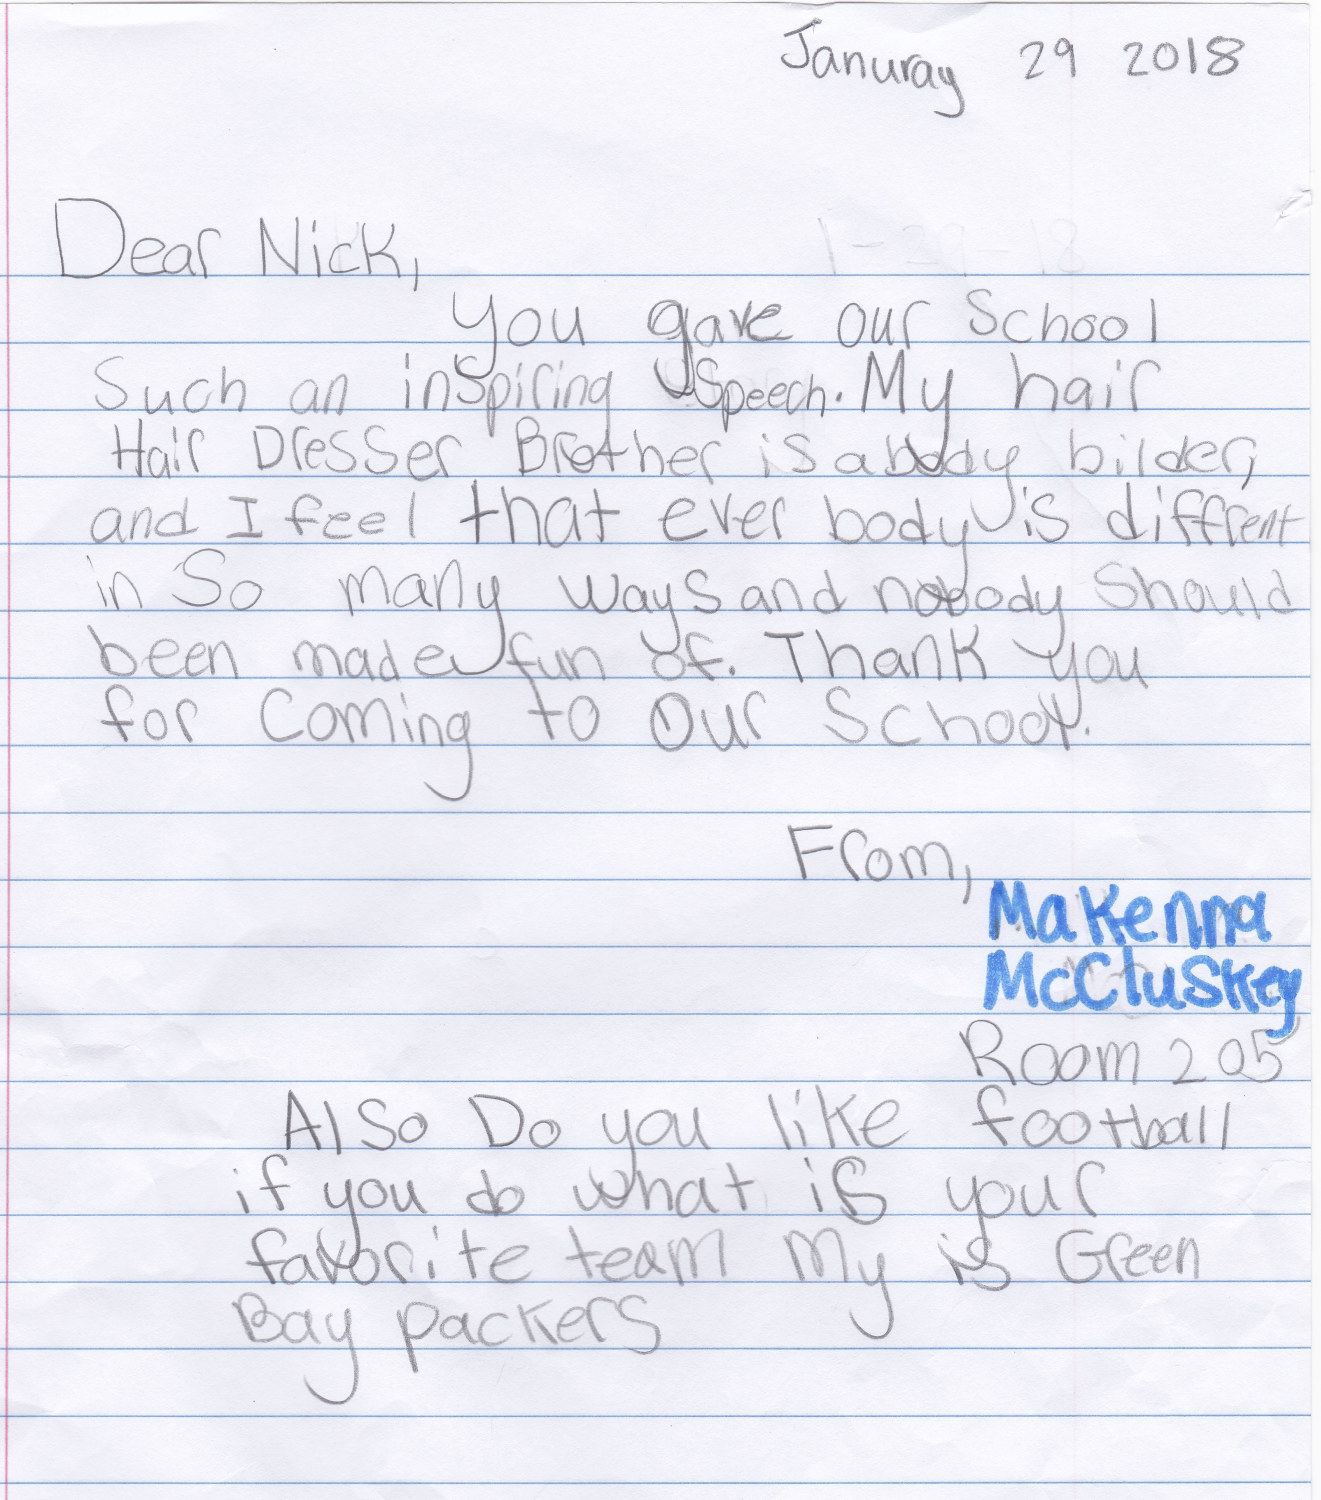 Januray 29 2018
Dear Nick,
You gave our School
Such an inspiring Speech. My hair
Hair Dresser Brother is a body bilder,
and I feel that ever body is diffrent
in So many ways and nobody Should
been made fun of. Thank you
for Coming to Our School.
From,
Makenna
McCluskey
Room 205
Also Do you like football
if you do what is your
favorite team My is Green
Bay packers